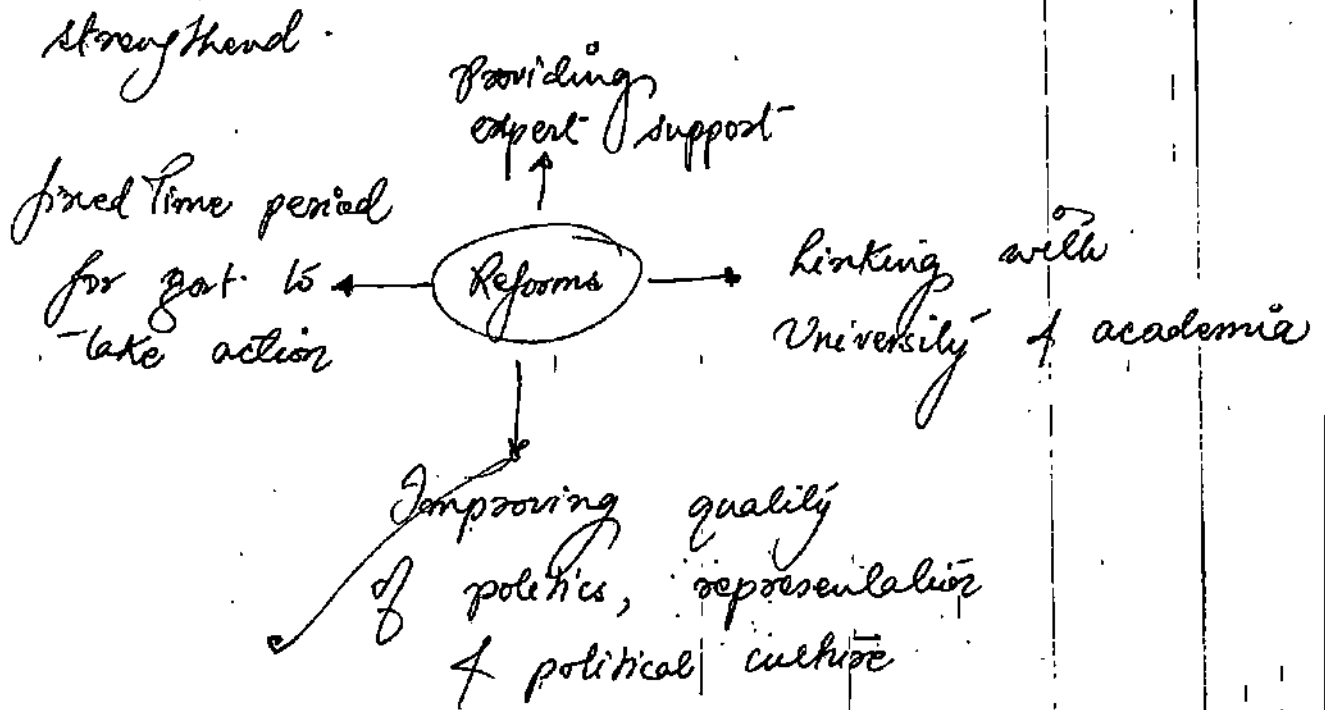 strengthend.
Providing
expert support
fixed Time period
for govt. to
take action
Reforms
Linking with
University & academia
Improving quality
of politics, representation
& political culture